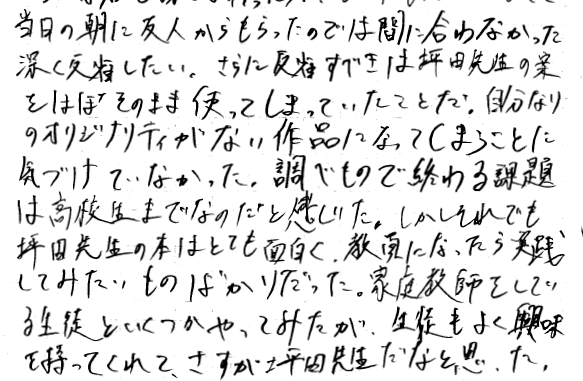 当日の朝に友人からもらったのでは間に合わなかった
深く反省したい。さらに反省すべきは坪田先生の案
をほぼそのまま使ってしまっていたことだ。自分なり
のオリジナリティがない作品になってしまうことに
気づけていなかった。調べもので終わる課題
は高校生までなのだと感じた。しかしそれでも
坪田先生の本はとても面白く、教員になったら実践
してみたいものばかりだった。家庭教師をしてい
る生徒といくつかやってみたが、生徒もよく興味
を持ってくれて、さすが坪田先生だなと思った。